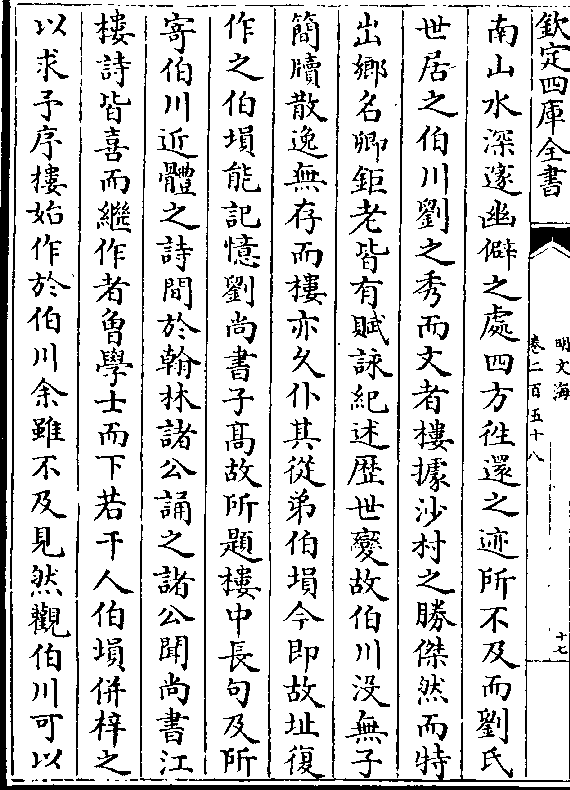 欽定四庫全書
明文海
卷二百五十八
十七
南山水深邃幽僻之處四方徃還之迹所不及而劉氏
世居之伯川劉之秀而文者樓據沙村之勝傑然而特
出鄉名卿鉅老皆有賦詠紀述歴世變故伯川没無子
簡牘散逸無存而樓亦久仆其從弟伯塤今即故址復
作之伯塤能記憶劉尚書子髙故所題樓中長句及所
寄伯川近體之詩間於翰林諸公誦之諸公聞尚書江
樓詩皆喜而繼作者曾學士而下若干人伯塤併梓之
以求予序樓始作於伯川余雖不及見然觀伯川可以